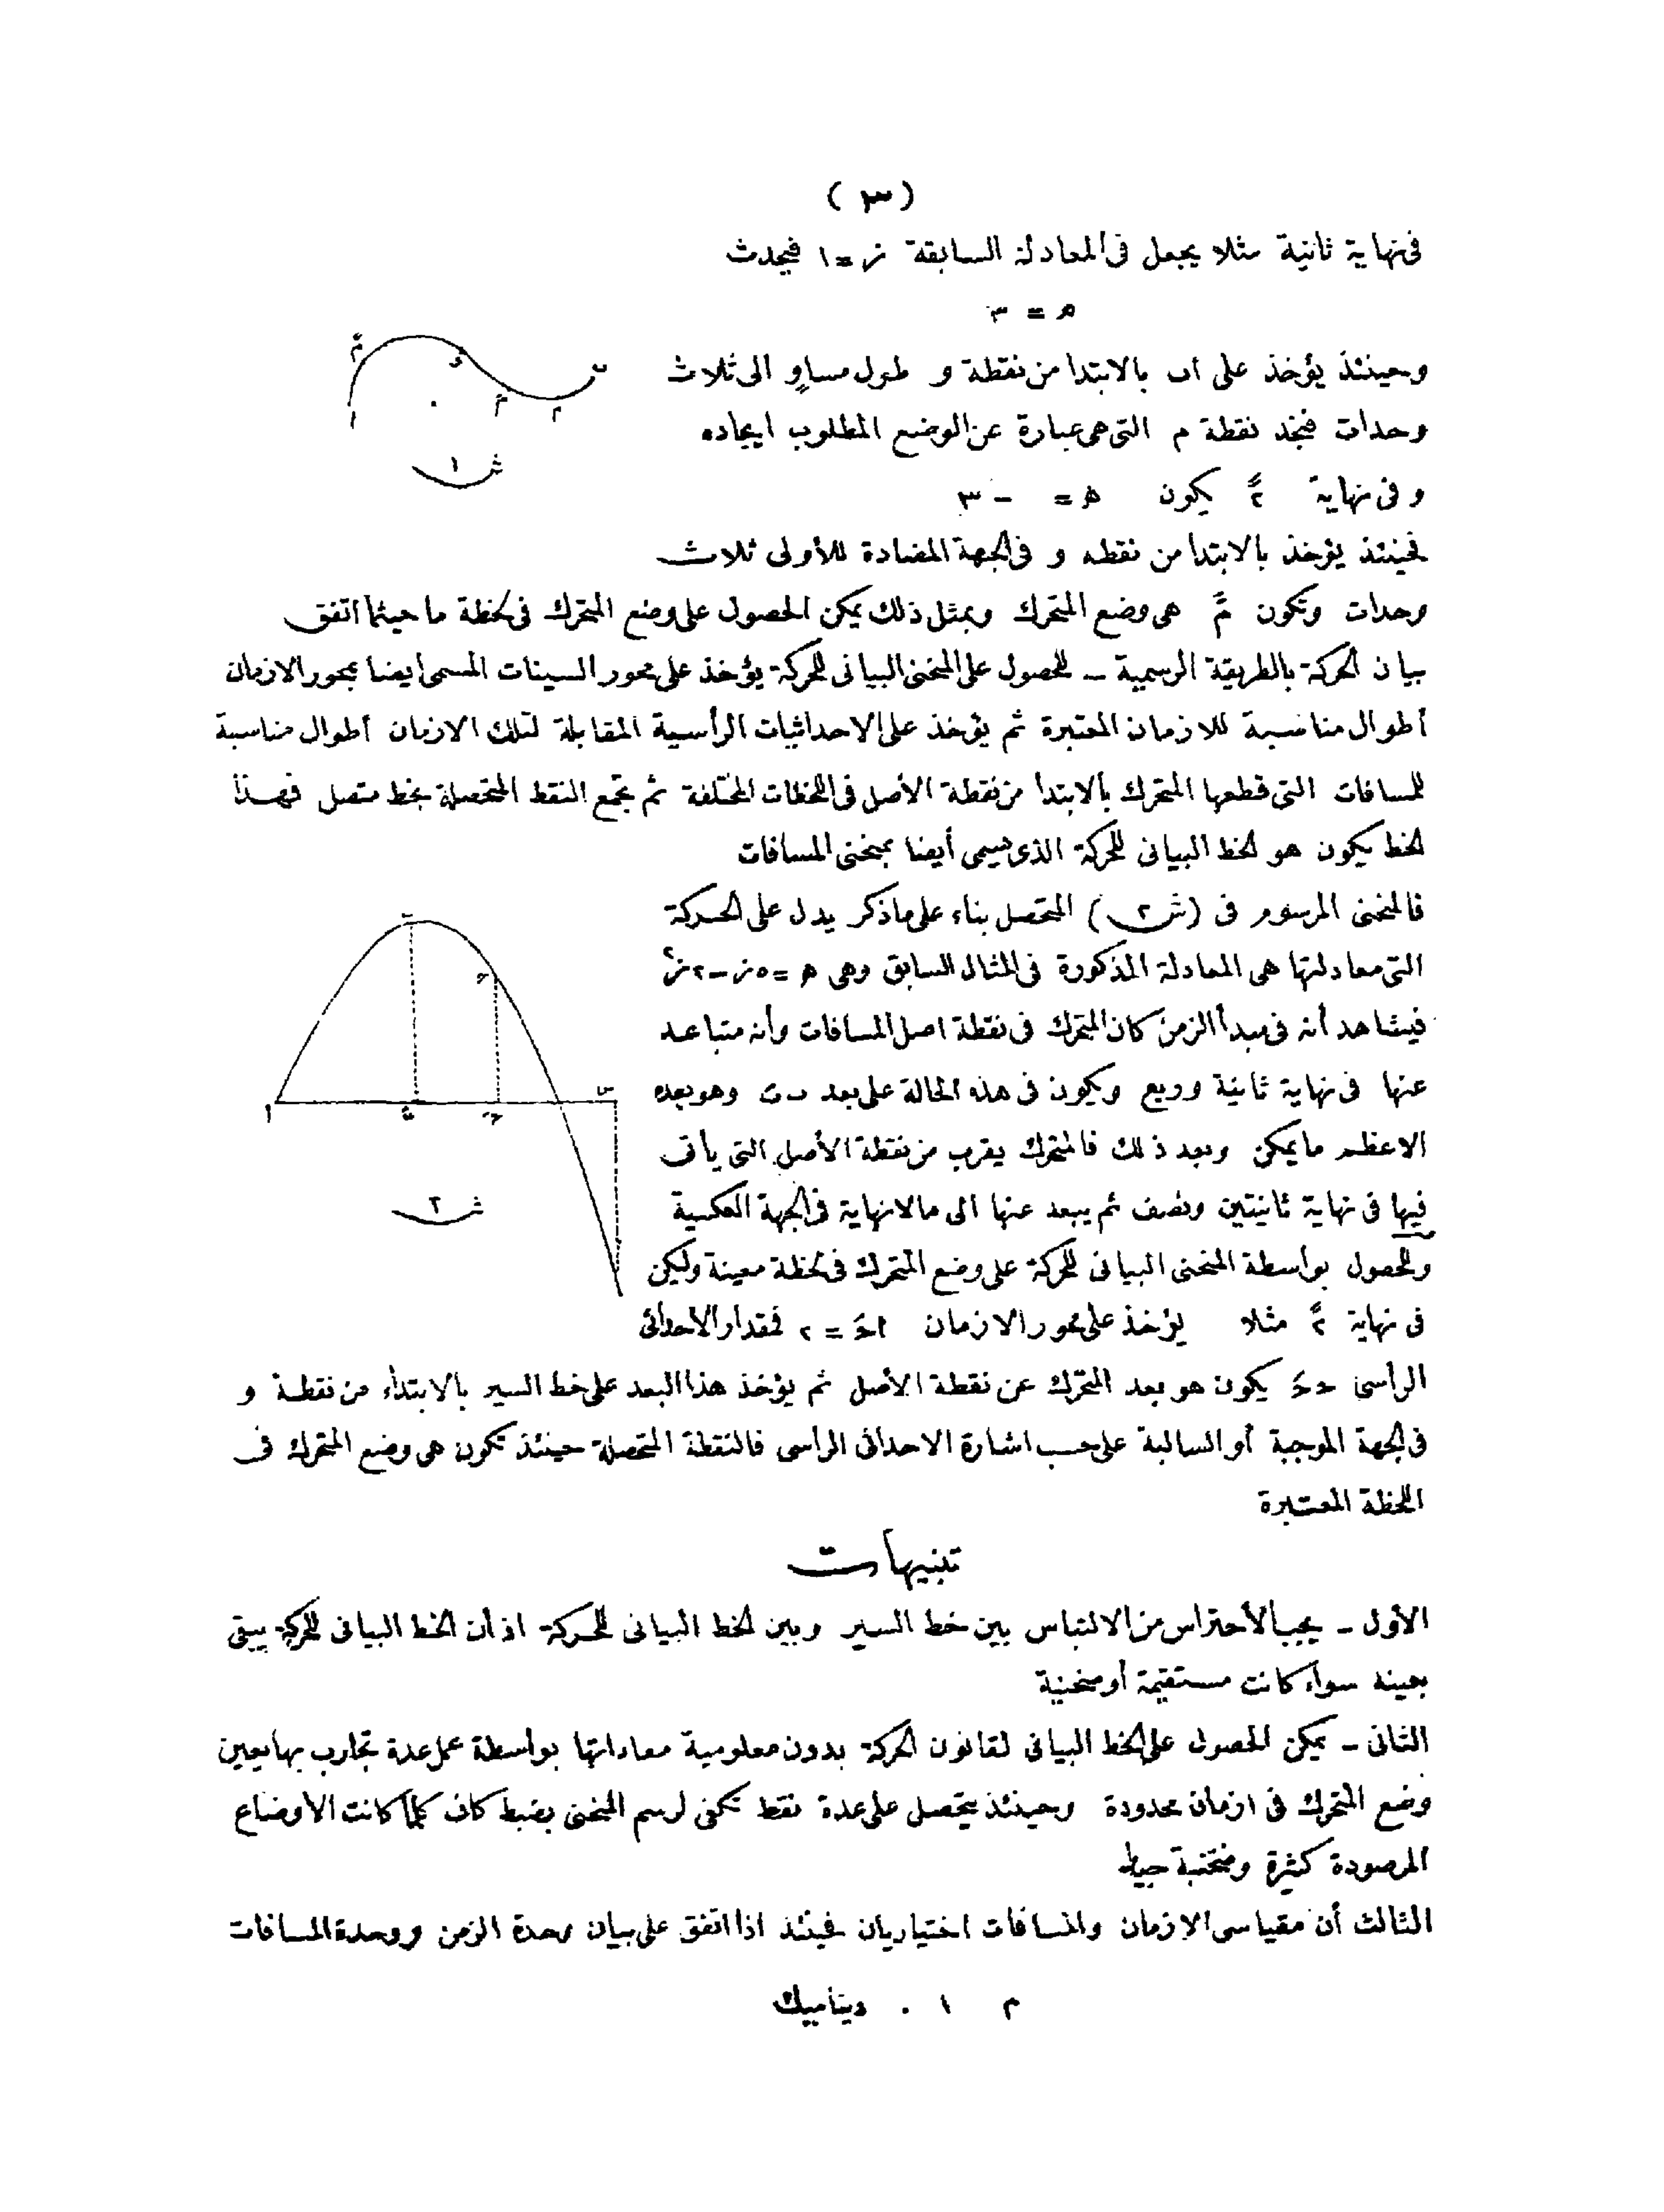 ( ٣ )
فى نهاية ثانية مثلا يجعل فى المعادلة السابقة ز = ١ فيحدث
م = ٣
وحينئذ يؤخذ على اب بالابتدا من نقطة و طول مساو الى ثلاث
وحدات فنجد نقطة م التى هى عبارة عن الوضع المطلوب ايجاده
و فى نهاية ٣ً يكون = - ٣
فحينئذ يؤخذ بالابتدا من نقطه و فى الجهة المضادة للأولى ثلاث
وحدات وتكون مً هى وضع المتحرك وبمثل ذلك يمكن الحصول على وضع المتحرك فى لحظة ما حيثما اتفق
بيان الحركة بالطريقة الرسمية ــ للحصول على المنحنى البيانى للحركة يؤخذ على محور السينات المسمى ايضا بمحور الازمان
أطوال مناسبة للازمان المعتبرة ثم يؤخذ على الاحداثيات الرأسية المقابلة لتلك الازمان أطوال مناسبة
للمسافات التى قطعها المتحرك بالابتدأ من نقطة الأصل فى اللحظات المختلفة ثم تجمع النقط المتحصلة بخط متصل فهذا
الخط يكون هو الخط البيانى للحركة الذى يسمى أيضا بمنحنى المسافات
فالمنحنى المرسوم فى (ش ٢) المتحصل بناء على ماذكر يدل على الحركة
التى معادلتها هى المعادلة المذكورة فى المثال السابق وهى م = ٥ز - ٢ز٢
فيشاهد أنه فى مبدأ الزمن كان المتحرك فى نقطة اصل المسافات وأنه متباعد
عنها فى نهاية ثانية وربع ويكون فى هذه الحالة على بعد ب ت وهو بعده
الاعظم مايمكن وبعد ذلك فالمتحرك يقرب من نقطة الأصل التى يأتى
فيها فى نهاية ثانيتين ونصف ثم يبعد عنها الى مالانهاية فى الجهة العكسية
وللحصول بواسطة المنحنى البيانى للحركة على وضع المتحرك فى لحظة معينة وليكن
فى نهاية ٢ً مثلا يؤخذ على محور الازمان احَ = ٢ فمقدار الأحداثى
الرأسى ححَ يكون هو بعد المتحرك عن نقطة الأصل ثم يؤخذ هذا البعد على خط السير بالابتداء من نقطة و
فى الجهة الموجبة أو السالبة على حسب اشارة الاحداثى الراسى فالنقطة المتحصلة حينئذ تكون هى وضع المتحرك فى
اللحظة المعتبرة
تنبيهات
الأول ــ يجب الأحتراس من الالتباس بين خط السير وبين الخط البيانى للحركة اذ أن الخط البيانى للحركة يبقى
بعينه سواء كانت مستقيمة أو منحنية
الثانى ــ يمكن الحصول على الخط البيانى لقانون الحركة بدون معلومية معادلتها بواسطة عمل عدة تجارب بها يعين
وضع المتحرك فى ازمان محدودة وحينئذ يتحصل على عدة نقط تكفى لرسم المنحنى بضبط كاف كلما كانت الاوضاع
المرصودة كثيرة ومنتخبة
الثالث أن مقياسى الازمان والمسافات اختياريان فحينئذ اذا اتفق على بيان وحدة الزمن ووحدة المسافات
م ١ . ديناميك
ش ١
ش ٢